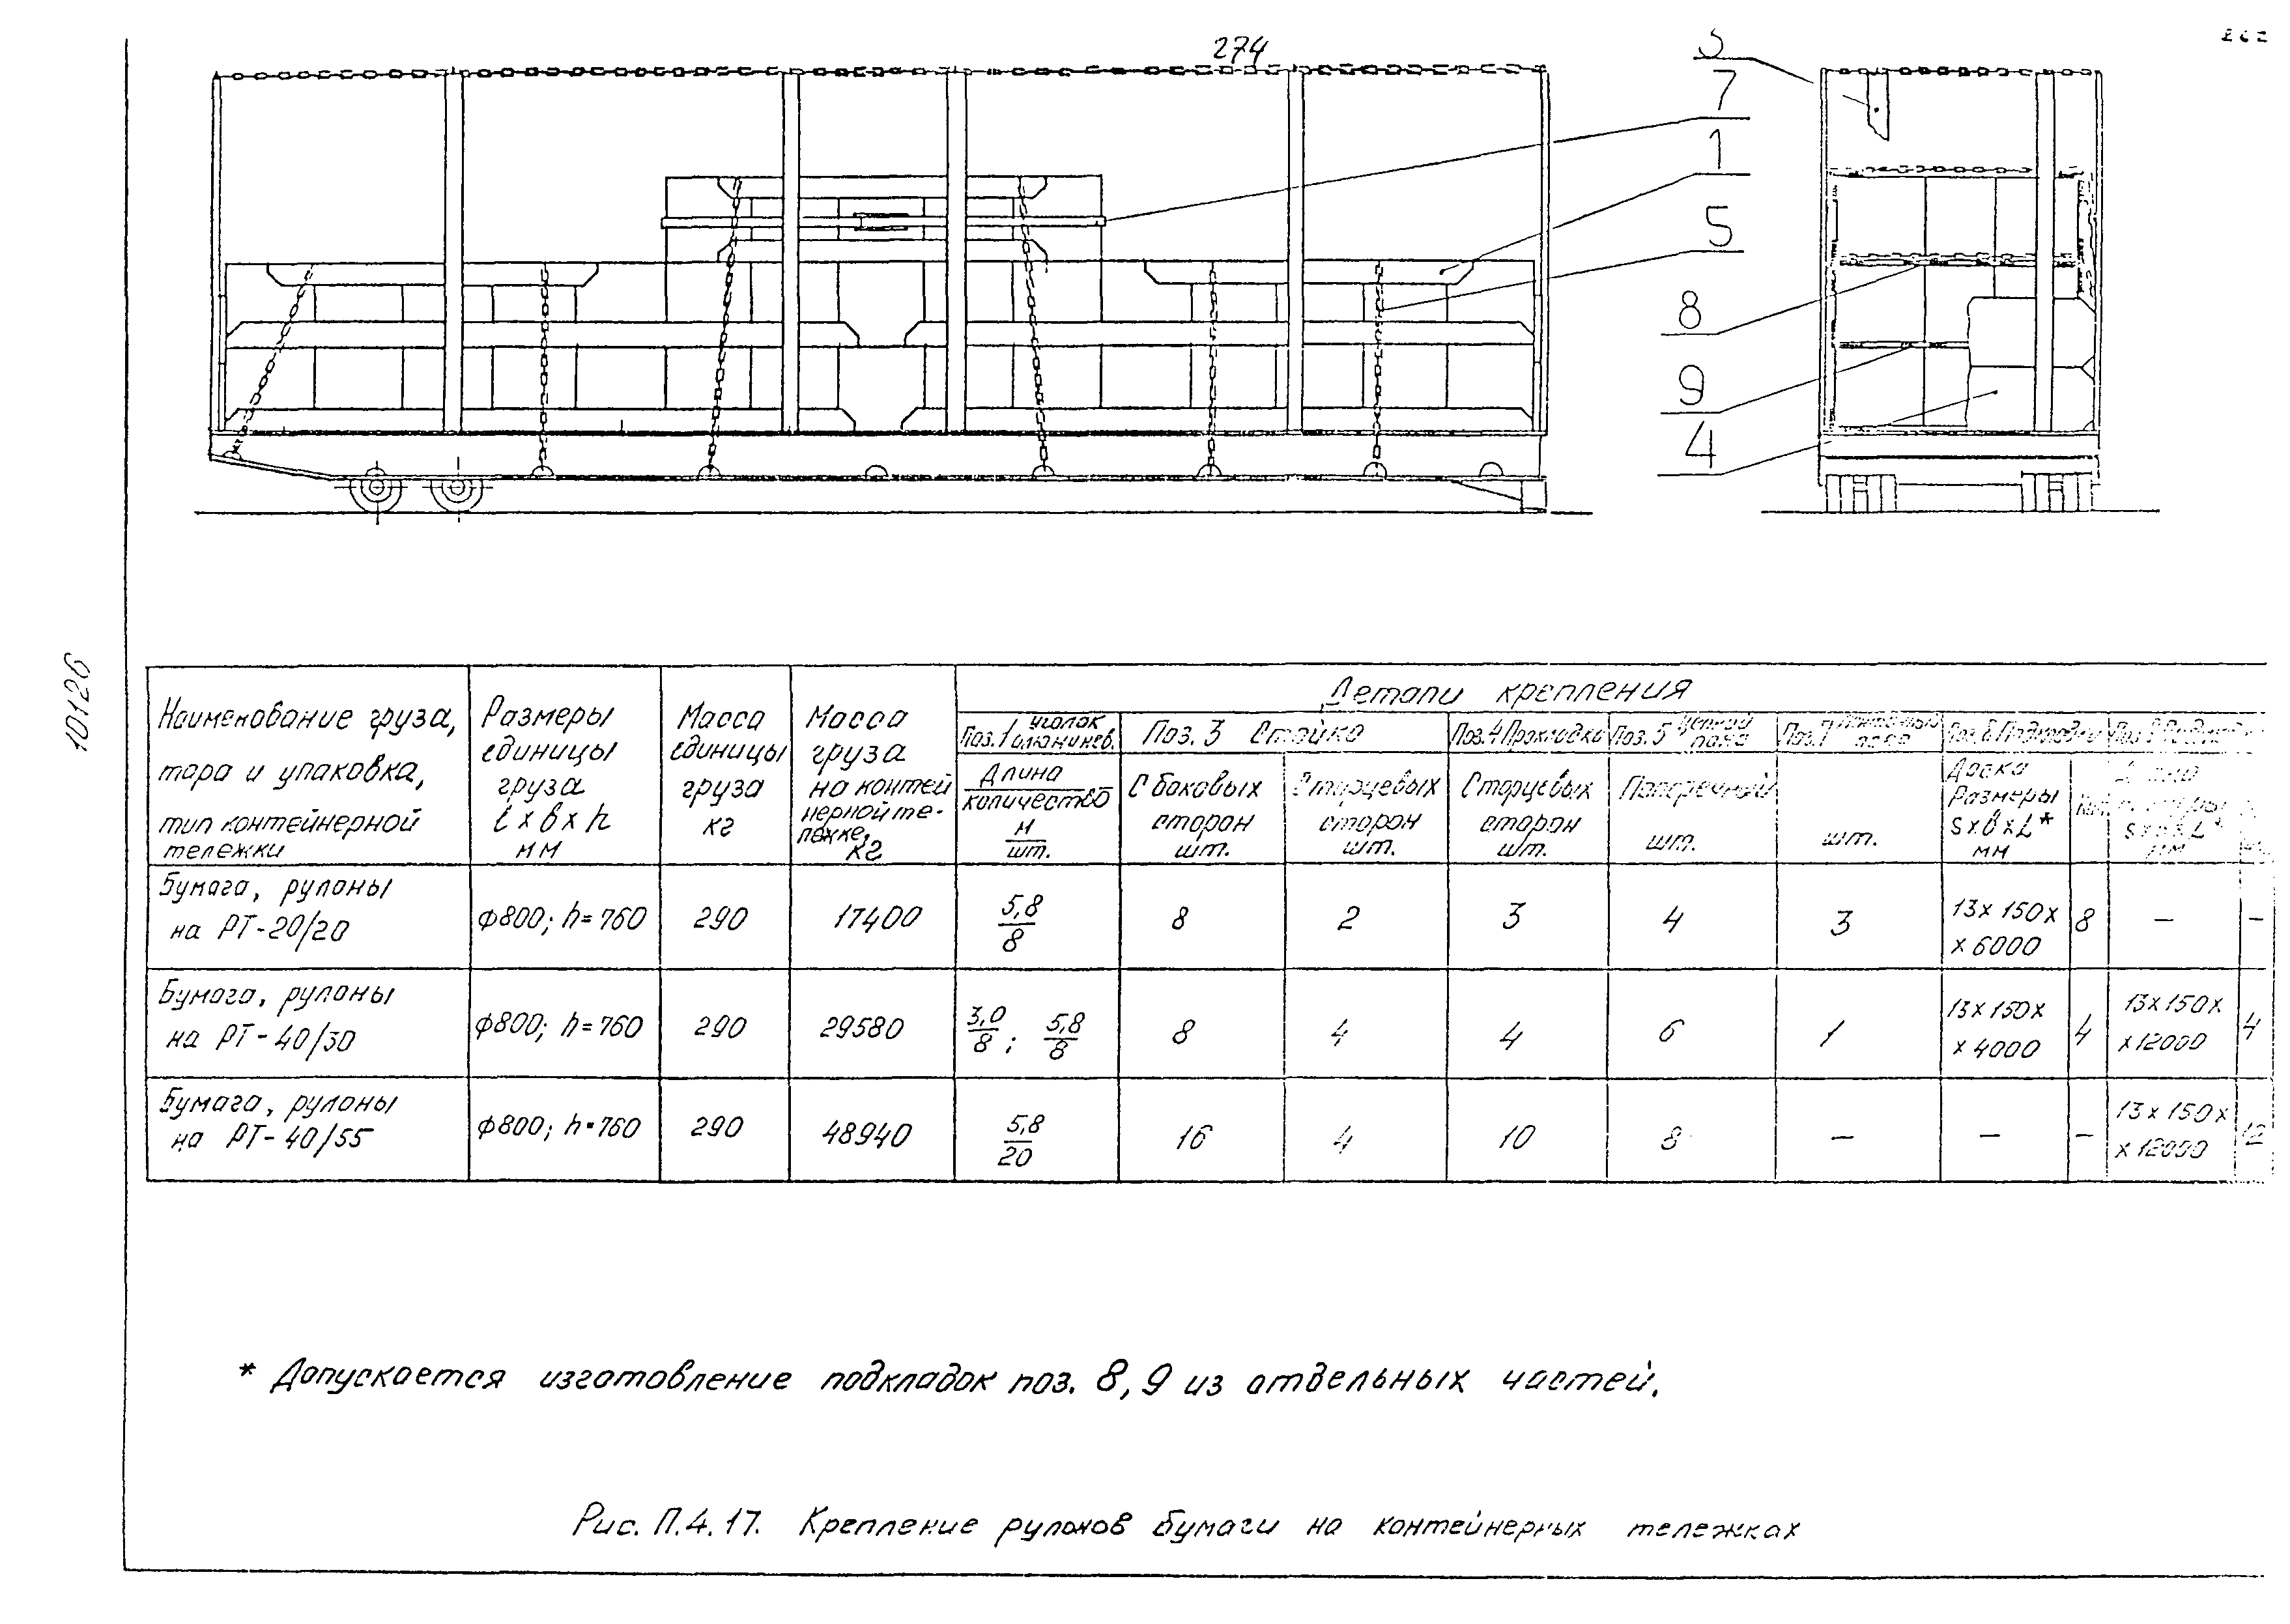 274
3
7
1
5
8
9
4
10126
Наименование груза,
тара и упаковка,
тип контейнерной
тележки
Размеры
единицы
груза
l x b x h
мм
Масса
единицы
груза
кг
Масса
груза
на контей
нерной те-
лежке,
кг
Детали крепления
Поз. 1 уголок
алюминев.
Длина
количество
м
шт.
Поз. 3 Стойка
С боковых
сторон
шт.
С торцевых
сторон
шт.
Поз. 4 Прокладка
С торцевых
сторон
шт.
Поз. 5
Поперечный
шт.
Поз. 7
шт.
Доска
Размеры
S x b x L*
мм
Бумага, рулоны
на РТ-20/20
ф800; h=760
290
17400
5,8
8
8
2
3
4
3
13 x 150 x
x 6000
8
–
–
Бумага, рулоны
на РТ-40/30
ф800; h=760
290
29580
3,0
8 ;
5,8
8
8
4
4
6
1
13 x 150 x
x 4000
4
13 x 150 x
x 12000
4
Бумага, рулоны
на РТ-40/55
ф800; h=760
290
48940
5,8
20
16
4
10
8
–
–
–
13 x 150 x
x 12000
12
* Допускается изготовление подкладок поз. 8, 9 из отдельных частей.
Рис. П.4.17. Крепление рулонов бумаги на контейнерных тележках